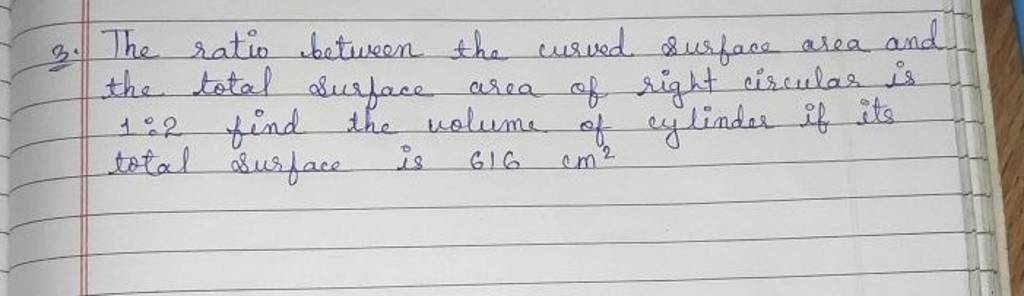 3. The ratio between the curved surface area and
the total surface area of right circular is
1:2 find the volume of cylinder if its
total surface is 616 cm²